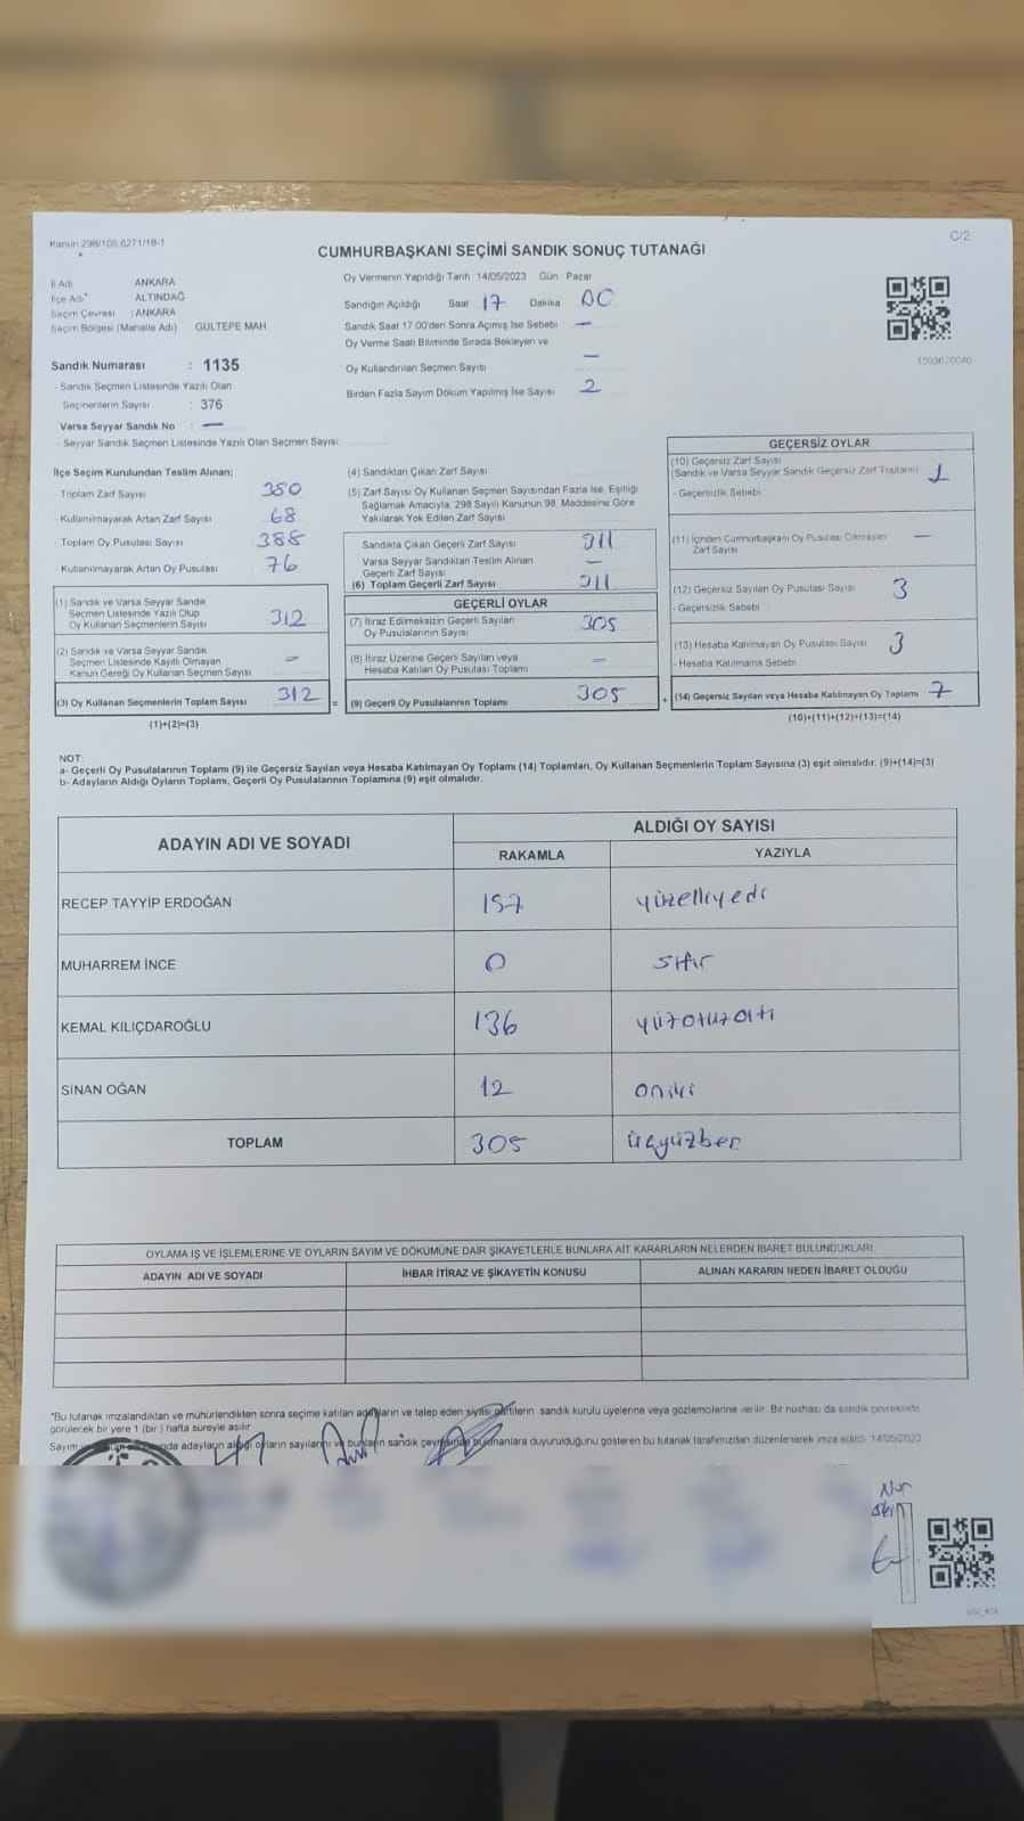 Kanun 298/105,6271/18-1
C/2
CUMHURBAŞKANI SEÇİMİ SANDIK SONUÇ TUTANAĞI
İl Adı ANKARA
İlçe Adı ALTINDAĞ
Seçim Çevresi : ANKARA
Seçim Bölgesi (Mahalle Adı) GÜLTEPE MAH
Sandık Numarası : 1135
- Sandık Seçmen Listesinde Yazılı Olan
Seçmenlerin Sayısı : 376
Varsa Seyyar Sandık No : —
- Seyyar Sandık Seçmen Listesinde Yazılı Olan Seçmen Sayısı
Oy Vermenin Yapıldığı Tarih 14/05/2023 Gün Pazar
Sandığın Açıldığı Saat 17 Dakika
Sandık Saat 17.00'den Sonra Açımış İse Sebebi —
Oy Verme Saati Bitiminde Sırada Bekleyen ve
Oy Kullandırılan Seçmen Sayısı —
Birden Fazla Sayım Döküm Yapılmış İse Sayısı 2
İlçe Seçim Kurulundan Teslim Alınan;
- Toplam Zarf Sayısı 380
- Kullanılmayarak Artan Zarf Sayısı 68
- Toplam Oy Pusulası Sayısı 388
- Kullanılmayarak Artan Oy Pusulası 76
(1) Sandık ve Varsa Seyyar Sandık
Seçmen Listesinde Yazılı Olup
Oy Kullanan Seçmenlerin Sayısı 312
(2) Sandık ve Varsa Seyyar Sandık
Seçmen Listesinde Kayıtlı Olmayan
Kanun Gereği Oy Kullanan Seçmen Sayısı —
(3) Oy Kullanan Seçmenlerin Toplam Sayısı 312 =
(1)+(2)=(3)
(4) Sandıktan Çıkan Zarf Sayısı
(5) Zarf Sayısı Oy Kullanan Seçmen Sayısından Fazla İse, Eşitliği
Sağlamak Amacıyla, 298 Sayılı Kanunun 98. Maddesine Göre
Yakılarak Yok Edilen Zarf Sayısı
Sandıkta Çıkan Geçerli Zarf Sayısı 311
Varsa Seyyar Sandıktan Teslim Alınan
Geçerli Zarf Sayısı —
(6) Toplam Geçerli Zarf Sayısı 311
GEÇERLİ OYLAR
(7) İtiraz Edilmeksizin Geçerli Sayılan
Oy Pusulalarının Sayısı 305
(8) İtiraz Üzerine Geçerli Sayılan veya
Hesaba Katılan Oy Pusulası Toplamı —
(9) Geçerli Oy Pusulalarının Toplamı 305 +
GEÇERSİZ OYLAR
(10) Geçersiz Zarf Sayısı
(Sandık ve Varsa Seyyar Sandık Geçersiz Zarf Toplamı) 1
- Geçersizlik Sebebi
(11) İçinden Cumhurbaşkanı Oy Pusulası Çıkmayan
Zarf Sayısı —
(12) Geçersiz Sayılan Oy Pusulası Sayısı 3
- Geçersizlik Sebebi
(13) Hesaba Katılmayan Oy Pusulası Sayısı 3
- Hesaba Katılmama Sebebi
(14) Geçersiz Sayılan veya Hesaba Katılmayan Oy Toplamı 7
(10)+(11)+(12)+(13)=(14)
NOT
a- Geçerli Oy Pusulalarının Toplamı (9) ile Geçersiz Sayılan veya Hesaba Katılmayan Oy Toplamı (14) Toplamları, Oy Kullanan Seçmenlerin Toplam Sayısına (3) eşit olmalıdır. (9)+(14)=(3)
b- Adayların Aldığı Oyların Toplamı, Geçerli Oy Pusulalarının Toplamına (9) eşit olmalıdır.
ADAYIN ADI VE SOYADI ALDIĞI OY SAYISI
RAKAMLA YAZIYLA
RECEP TAYYİP ERDOĞAN 157 yüzelliyedi
MUHARREM İNCE 0 sıfır
KEMAL KILIÇDAROĞLU 136 yüzotuzaltı
SİNAN OĞAN 12 oniki
TOPLAM 305 üçyüzbeş
OYLAMA İŞ VE İŞLEMLERİNE VE OYLARIN SAYIM VE DÖKÜMÜNE DAİR ŞİKAYETLERLE BUNLARA AİT KARARLARIN NELERDEN İBARET BULUNDUKLARI
ADAYIN ADI VE SOYADI İHBAR İTİRAZ VE ŞİKAYETİN KONUSU ALINAN KARARIN NEDEN İBARET OLDUĞU
*Bu tutanak imzalandıktan ve mühürlendikten sonra seçime katılan adayların ve talep eden siyasi partilerin sandık kurulu üyelerine veya gözlemcilerine verilir. Bir nüshası da sandık çevresinde
görülecek bir yere 1 (bir) hafta süreyle asılır.
Sayım adayların aldığı oyların sayılarını ve bunların sandık çevresinde bulunanlara duyurulduğunu gösteren bu tutanak tarafımızdan düzenlenerek imza edildi. 14/05/2023
Nur